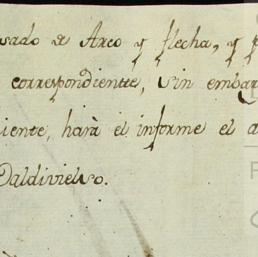 sado de Arco y flecha, y
correspondiente, sin embar
iente, harà el informe el a
Valdivielso.